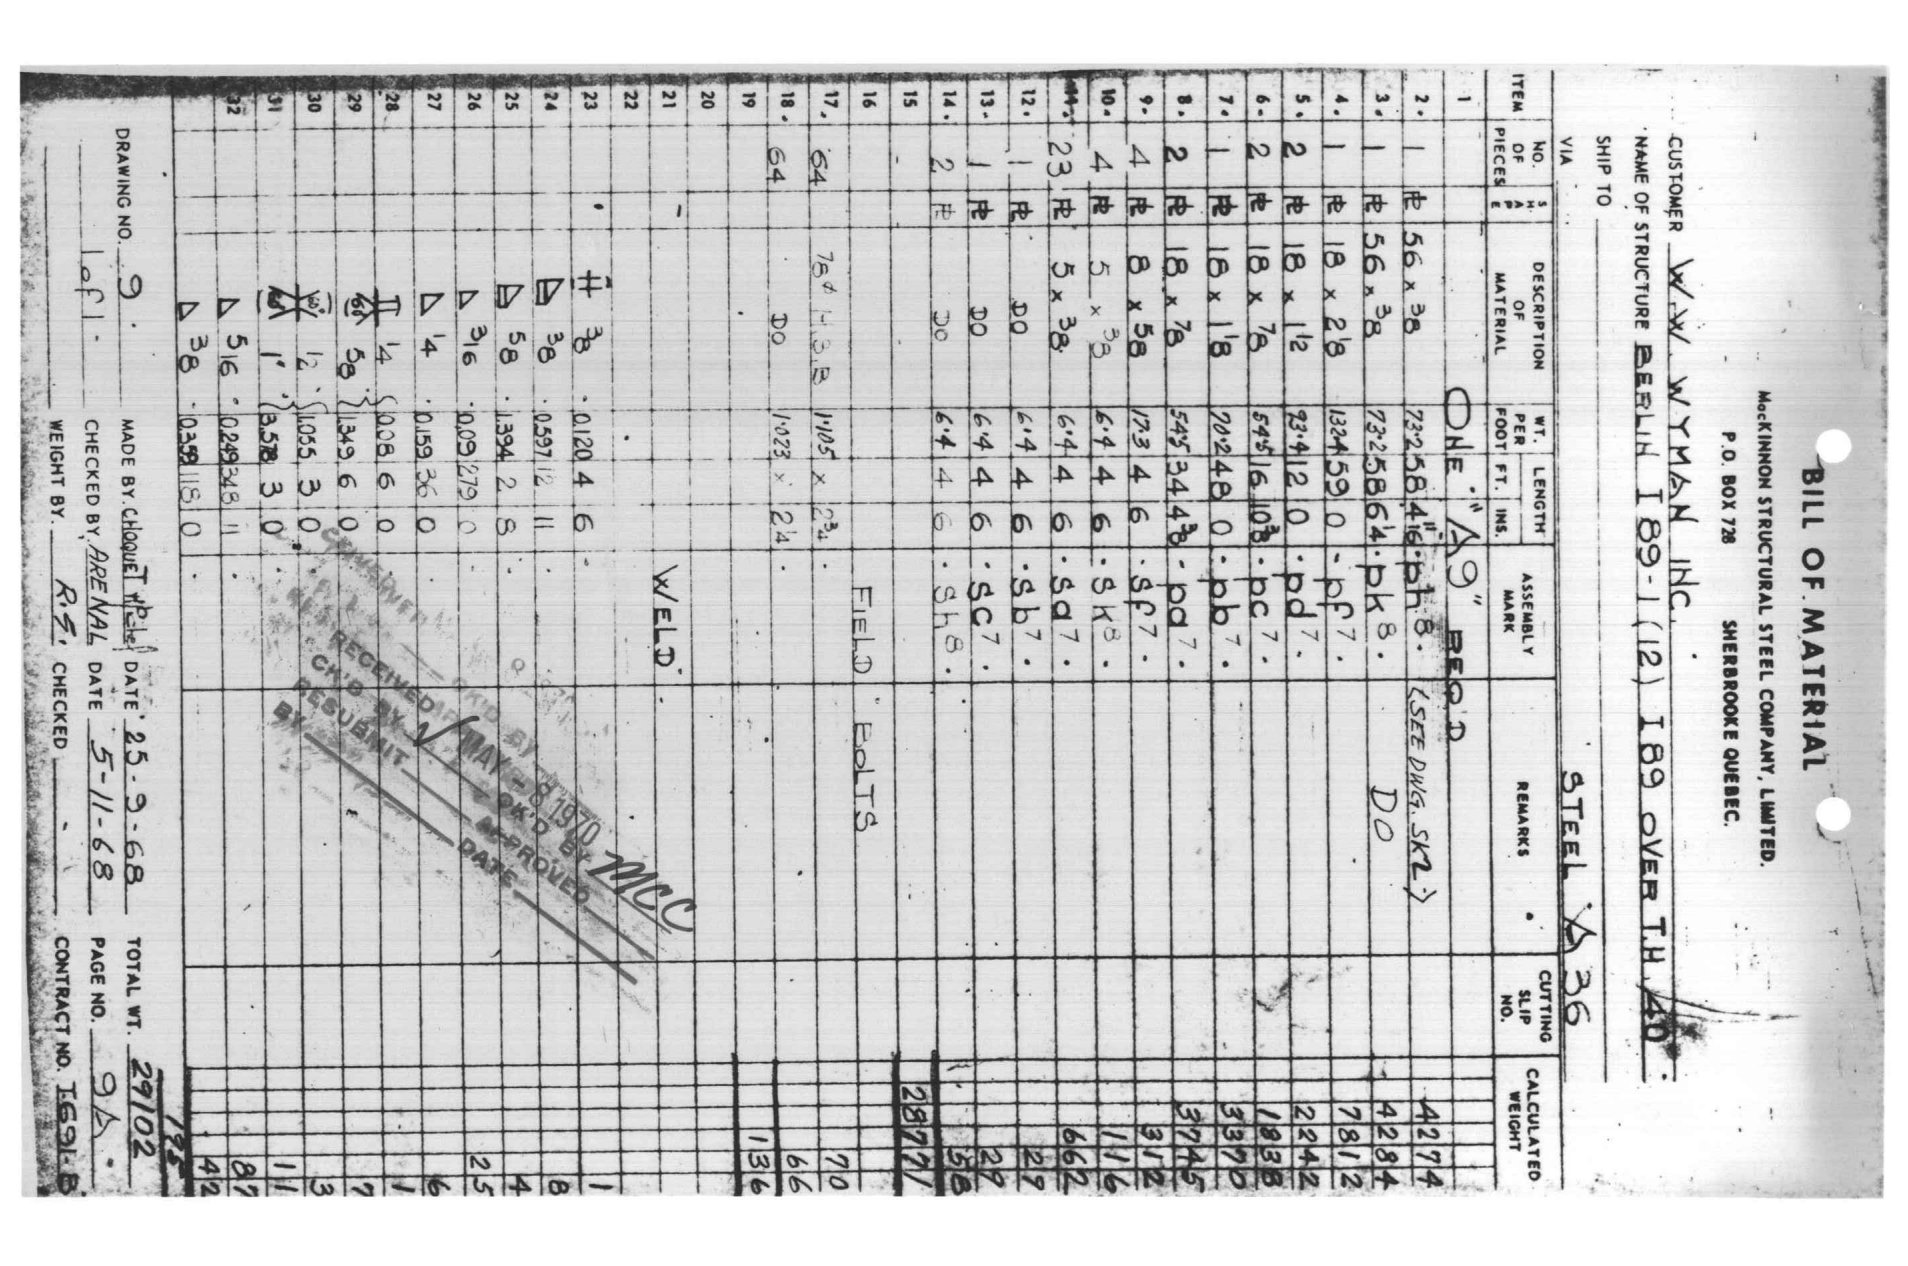 BILL OF MATERIAL
MacKINNON STRUCTURAL STEEL COMPANY, LIMITED.
P.O. BOX 728 SHERBROOKE QUEBEC.
CUSTOMER W.W. WYMAN INC.
NAME OF STRUCTURE BERLIN I 89-1 (12) I 89 OVER T.H. 40
SHIP TO
VIA STEEL A 36
ITEM NO. OF PIECES SHAPE DESCRIPTION OF MATERIAL WT. PER FOOT LENGTH FT. INS. ASSEMBLY MARK REMARKS CUTTING SLIP NO. CALCULATED WEIGHT
1 ONE "A9" REQ'D
2. 1 PL 56 x 3/8 73.2 58 4 1/16" ph8. (SEE DWG. SK2) 4274
3. 1 PL 56 x 3/8 73.2 58 6 1/4 pk8. DO 4284
4. 1 PL 18 x 2 1/8 132.4 59 0 pf7. 7812
5. 2 PL 18 x 1 1/2 93.4 12 0 pd7. 2242
6. 2 PL 18 x 7/8 54.5 16 10 3/8 pc7. 1838
7. 1 PL 18 x 1 1/8 70.2 48 0 pb7. 3370
8. 2 PL 18 x 7/8 54.5 34 4 3/8 pa7. 3745
9. 4 PL 8 x 5/8 17.3 4 6 sf7. 312
10. 4 PL 5 x 3/8 6.4 4 6 sk8. 116
11. 23 PL 5 x 3/8 6.4 4 6 sa7. 662
12. 1 PL DO 6.4 4 6 sb7. 29
13. 1 PL DO 6.4 4 6 sc7. 29
14. 2 PL DO 6.4 4 6 sh8. 58
15 28771
16 FIELD BOLTS
17. 64 7/8 φ H.S.B 1.105 x 2 3/4 70
18. 64 DO 1.023 x 2 1/4 66
19 136
20
21 WELD.
22
23 3/8 0.120 4 6 1
24 3/8 0.597 12 11 8
25 5/8 1.394 2 8 4
26 3/16 0.09 279 0 25
27 1/4 0.159 36 0 6
28 1/4 0.08 6 0 1
29 5/8 1.349 6 0 7
30 1/2 1.055 3 0 3
31 1" 3.578 3 0 11
32 5/16 0.249 348 11 87
3/8 0.359 118 0 42
195
RECEIVED MAY - 8 1970
CK'D BY OK'D BY MCC
RESUBMIT APPROVED
BY DATE
DRAWING NO. 9. MADE BY CHOQUET DATE 25-9-68 TOTAL WT. 29102
1 of 1. CHECKED BY ARENAL DATE 5-11-68 PAGE NO. 9A.
WEIGHT BY. R.S. CHECKED CONTRACT NO. I691-B